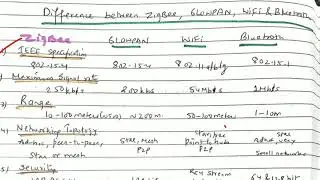 Difference between ZigBee, 6LOWPAN, WiFi & Bluetooth
ZigBee 6LOWPAN WiFi Bluetooth
IEEE Specification
802.15.4 802.15.4 802.11 a/b/g 802.15.1
2) Maximum Signal rate
250kbps 200kbs 54Mbps 1Mbps
Range
10-100meter 200m 50-100meter 1-10m
4) Networking Topology
Ad-hoc, peer-to-peer, Star, Mesh Point to hub Star
Star or mesh P2P P2P Small networks
5) Security